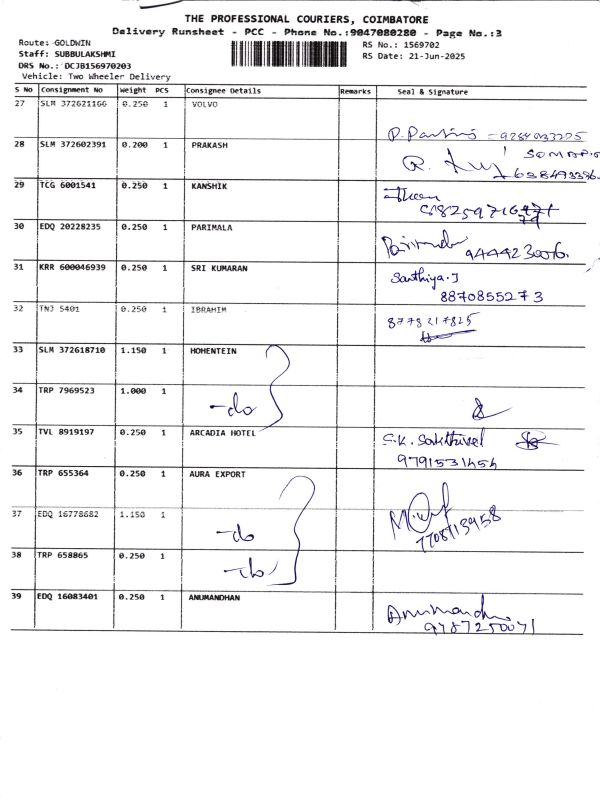 THE PROFESSIONAL COURIERS, COIMBATORE
Delivery Runsheet - PCC - Phone No.:9047080280 - Page No.:3
Route: GOLDWIN RS No.: 1569702
Staff: SUBBULAKSHMI RS Date: 21-Jun-2025
DRS No.: DCJB156970203
Vehicle: Two Wheeler Delivery
S No Consignment No Weight PCS Consignee Details Remarks Seal & Signature
27 SLM 372621166 0.250 1 VOLVO
28 SLM 372602391 0.200 1 PRAKASH
29 TCG 6001541 0.250 1 KANSHIK
30 EDQ 20228235 0.250 1 PARIMALA
9444230076.
31 KRR 600046939 0.250 1 SRI KUMARAN Santhiya.J
8870855273
32 TNJ 5401 0.250 1 IBRAHIM 8778217825
33 SLM 372618710 1.150 1 HOHENTEIN
34 TRP 7969523 1.000 1 -do
35 TVL 8919197 0.250 1 ARCADIA HOTEL S.K. Sakthivel
9791531454
36 TRP 655364 0.250 1 AURA EXPORT
37 EDQ 16778682 1.150 1 -do
7708113958
38 TRP 658865 0.250 1 -do
39 EDQ 16083401 0.250 1 ANUMANDHAN
9787250071